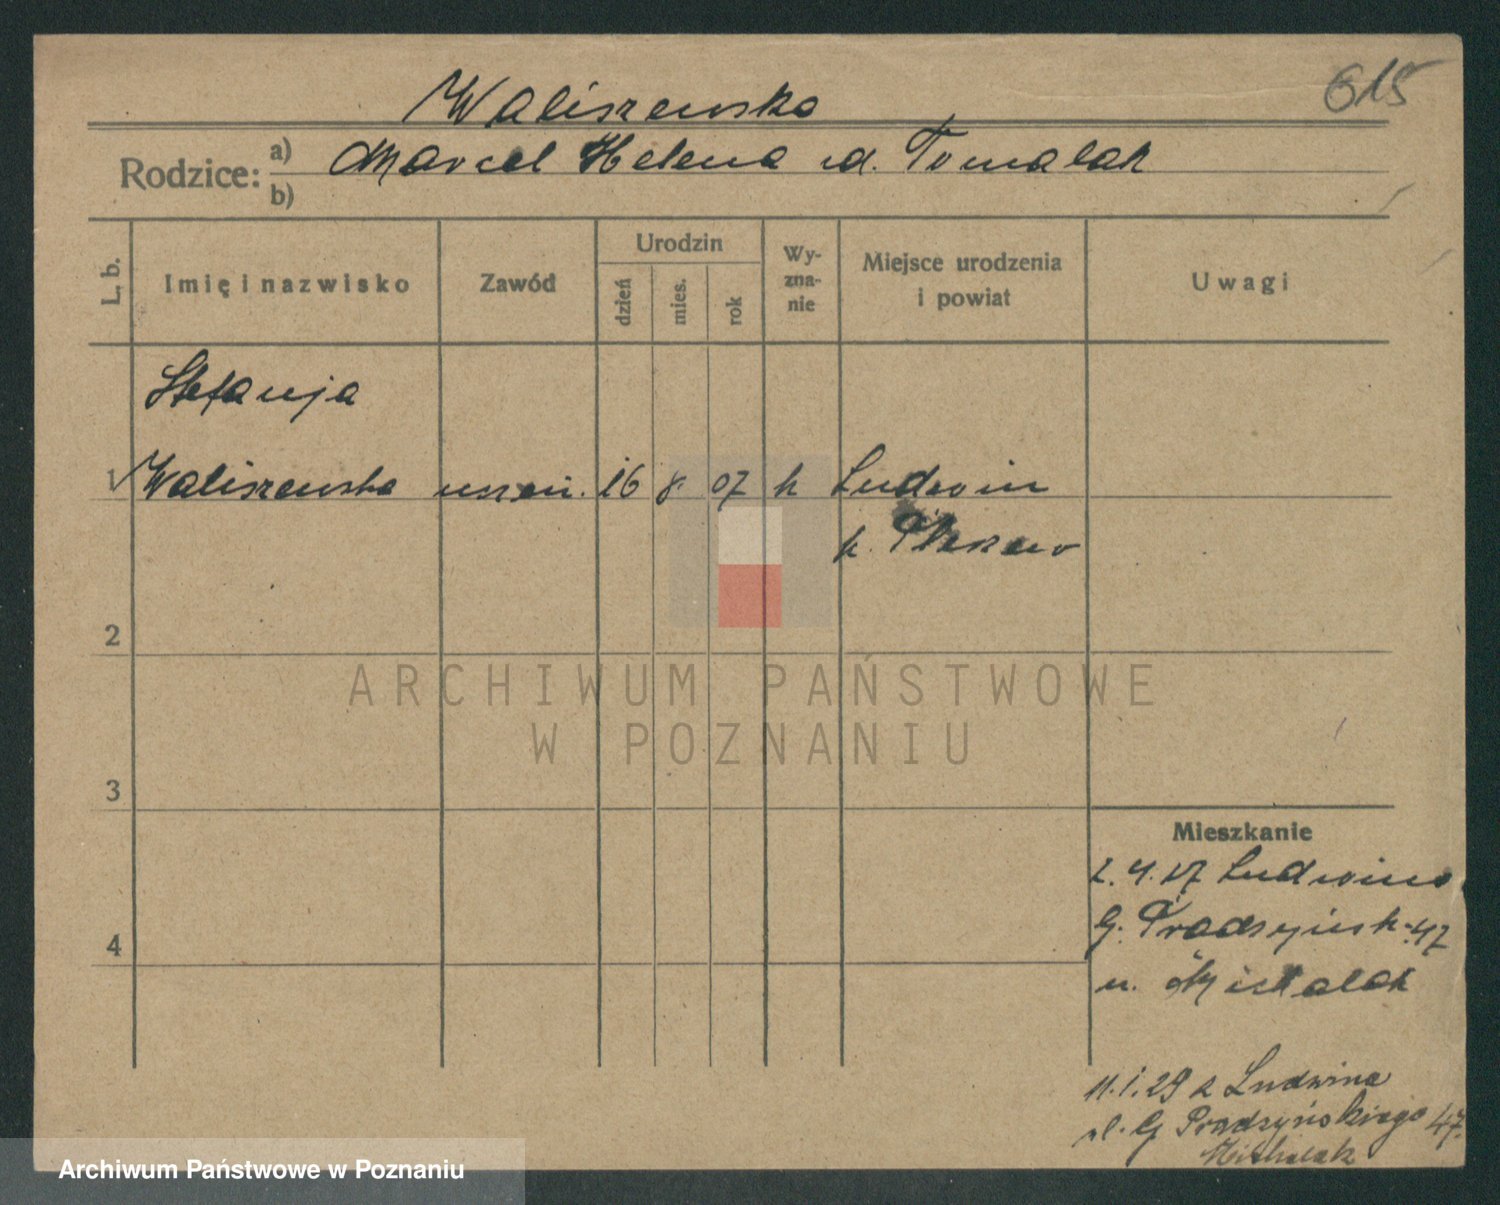 615
Waliszewska
Rodzice: a) Marcel Helena zd. Tomalak
b)
L. b.
Imię i nazwisko
Zawód
Urodzin
dzień
mies.
rok
Wy-
zna-
nie
Miejsce urodzenia
i powiat
Uwagi
Stefanja
1 Waliszewska 16 8. 07 k Ludwin
p. Pleszew
2
3
4
Mieszkanie
Ludwina
G. Prądzyńsk. 47
u. Michalak
11.1.29 z Ludwina
ul. G Prądzyńskiego 47.
Michalak
ARCHIWUM PAŃSTWOWE
W POZNANIU
Archiwum Państwowe w Poznaniu